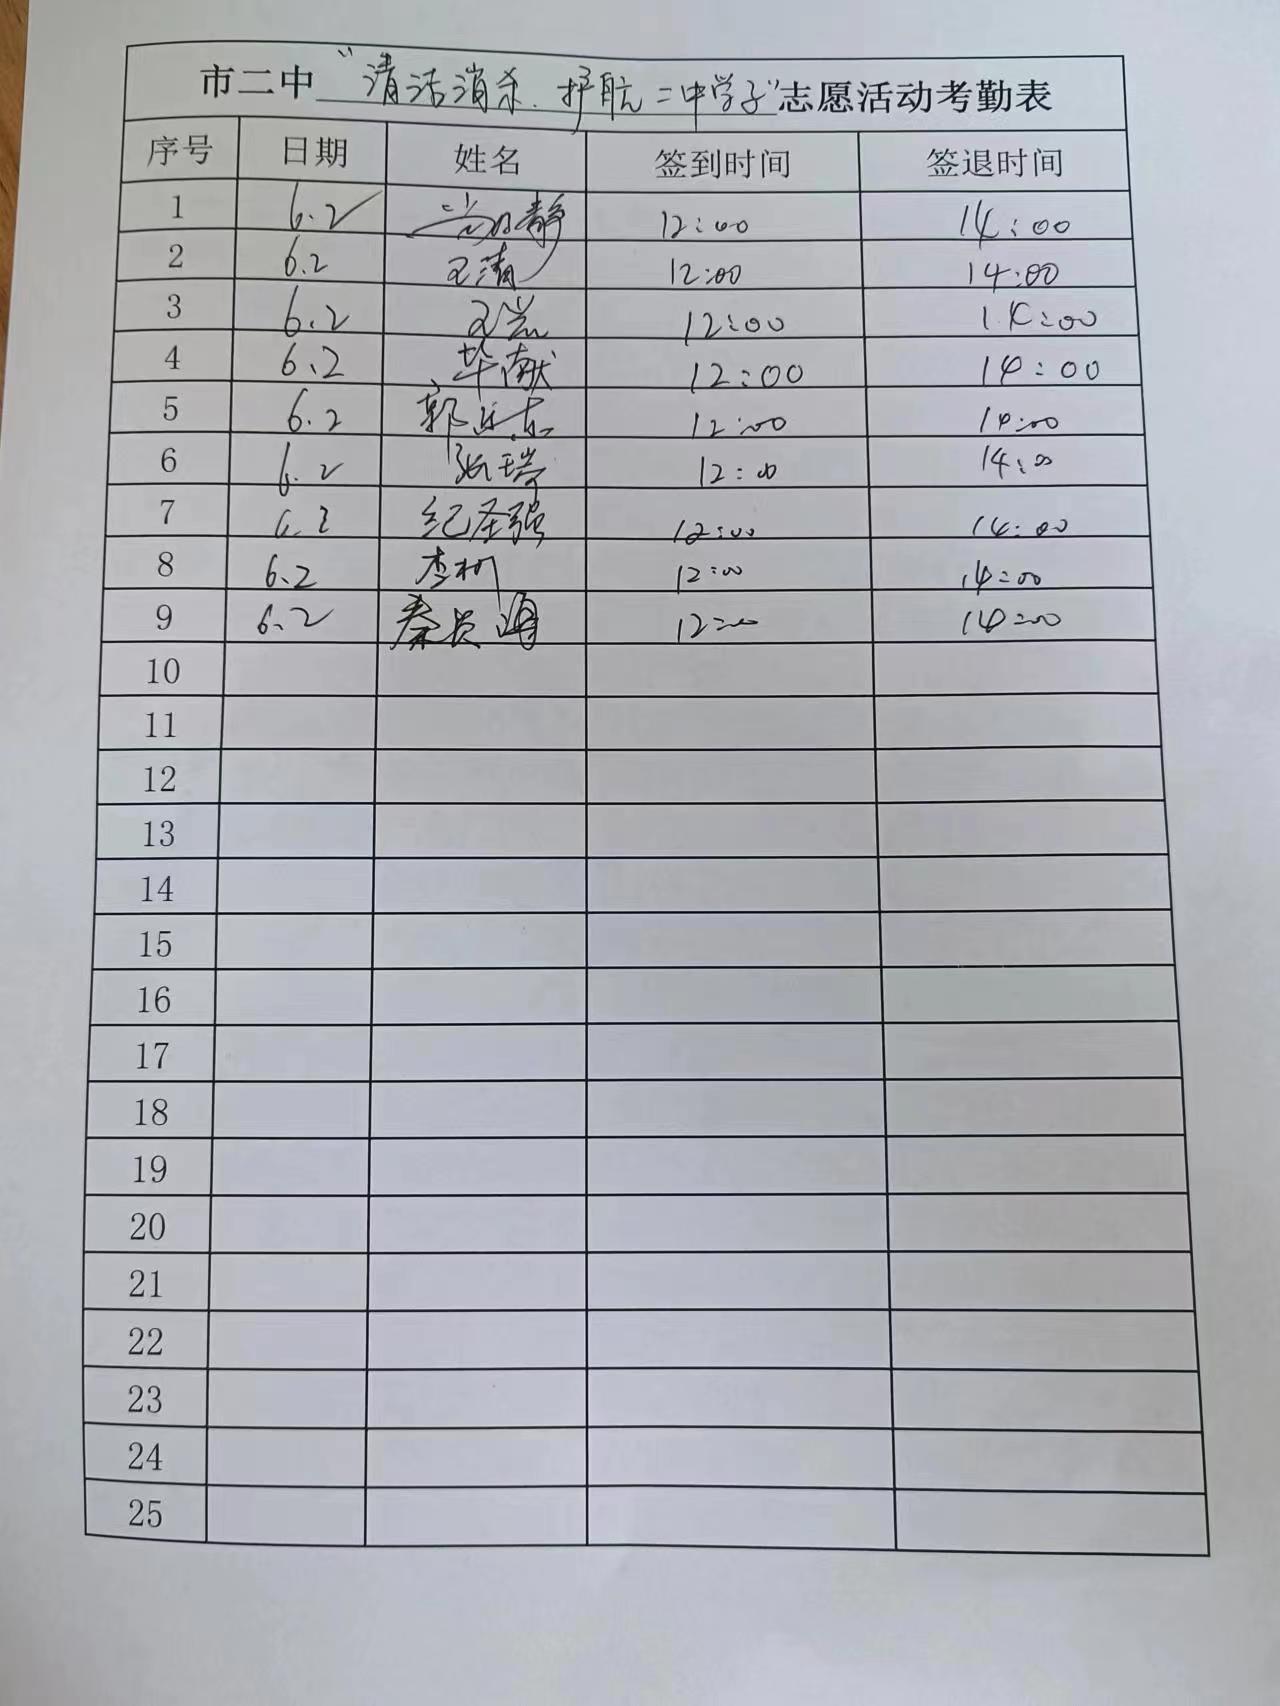 市二中“清洁消杀.护航二中学子”志愿活动考勤表
序号 日期 姓名 签到时间 签退时间
1 6.2 静 12:00 14:00
2 6.2 王清 12:00 14:00
3 6.2 王岚 12:00 14:00
4 6.2 毕献 12:00 14:00
5 6.2 郭 东 12:00 14:00
6 6.2 张瑞 12:00 14:00
7 6.2 纪圣强 12:00 14:00
8 6.2 李 12:00 14:00
9 6.2 秦 海 12:00 14:00
10
11
12
13
14
15
16
17
18
19
20
21
22
23
24
25